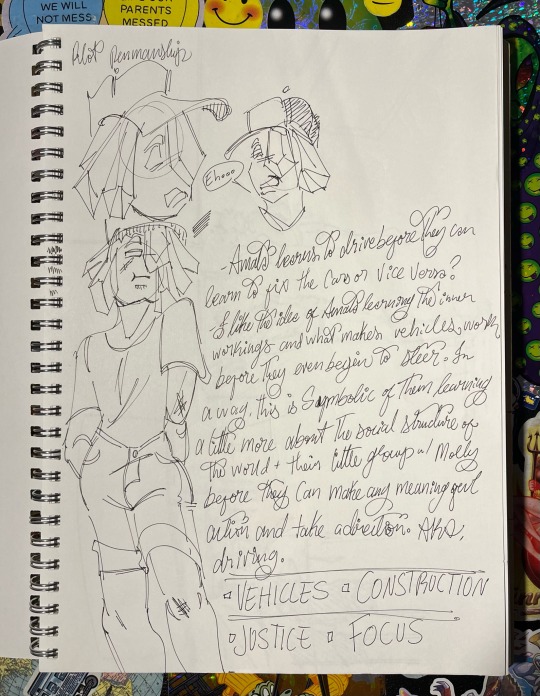 WE WILL
NOT MESS
OUR
PARENTS
MESSED
Pilot penmanship
Ehooo
-Amals learns to drive before they can
learn to fix the cars or Vice Versa?
-I like the idea of Amals learning the inner
workings and what makes vehicles work
before they even begin to steer. In
a way, this is Symbolic of them learning
a little more about the social structure of
the world + their little group w/ Molly
before they can make any meaningful
action and take a direction. AKA,
driving.
VEHICLES CONSTRUCTION
JUSTICE FOCUS